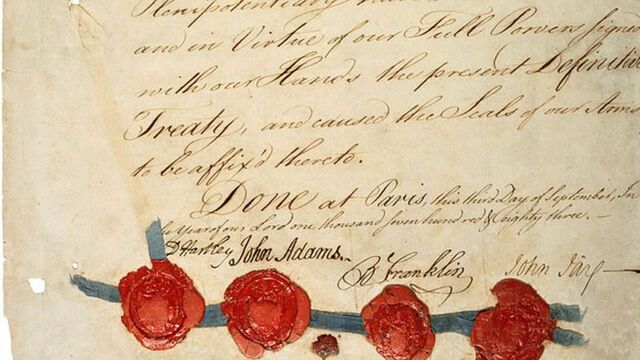 and in Virtue of our Full Powers
with our Hands the present Definitive
Treaty, and caused the Seals of our Arms
to be affix'd thereto.
Done at Paris, this third Day of September, In
Year of our Lord one thousand seven hundred & eighty three.—
D Hartley John Adams. B Franklin John Jay—